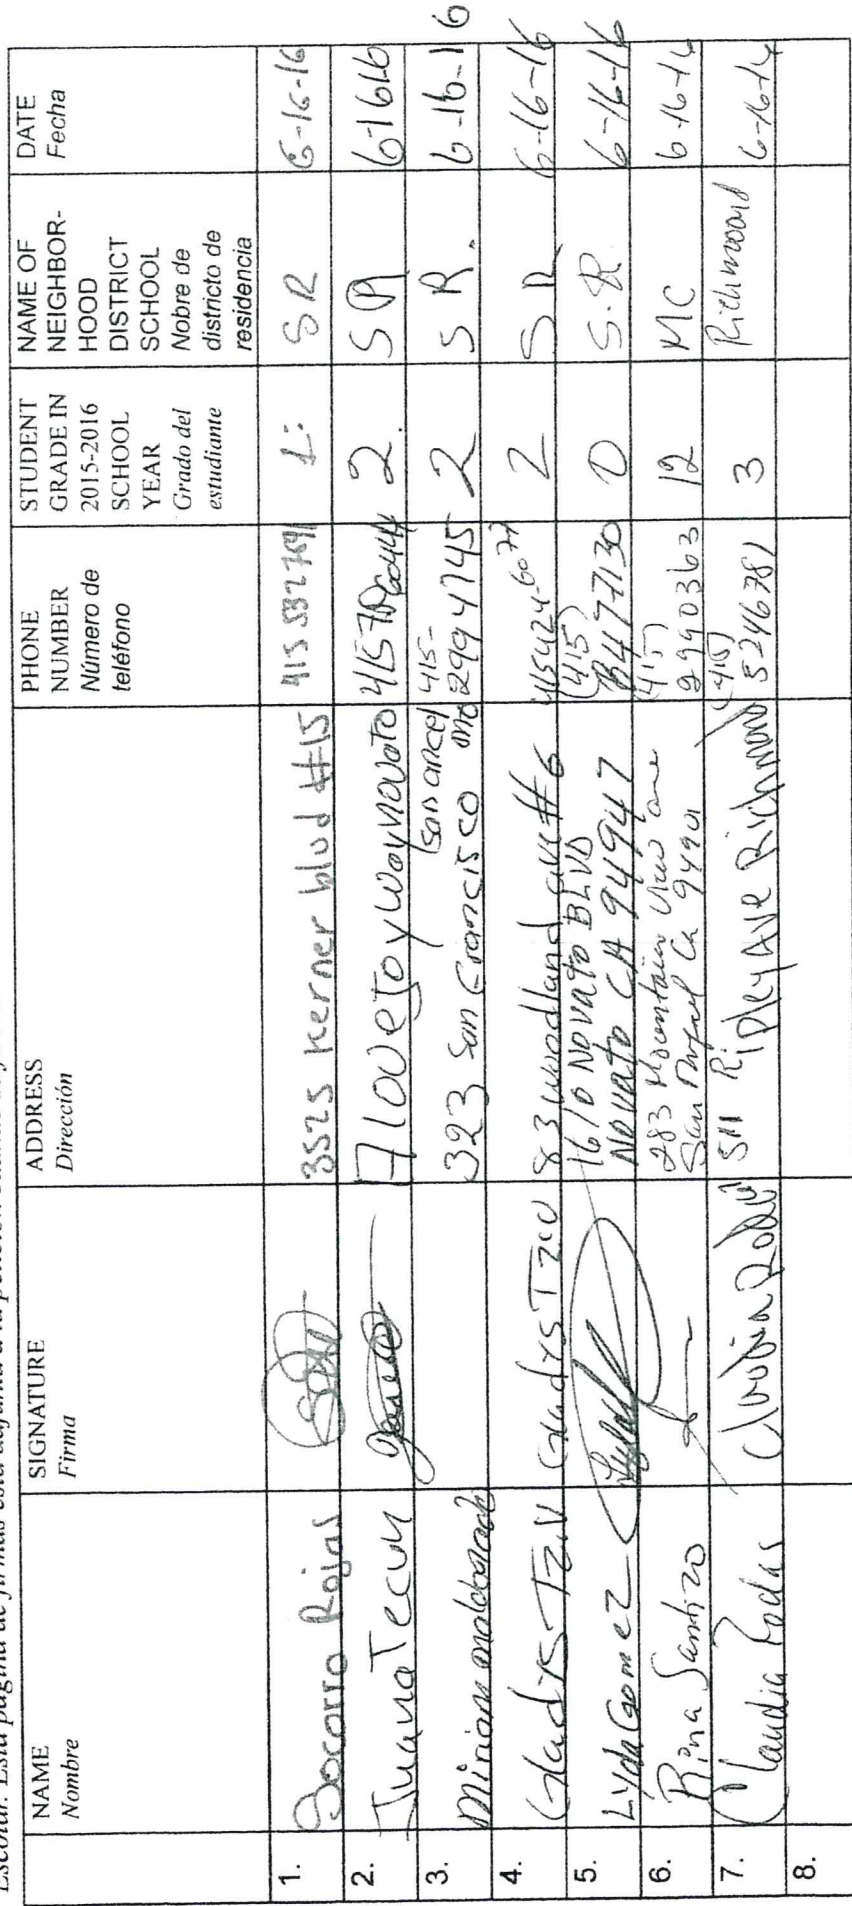 NAME
Nombre
SIGNATURE
Firma
ADDRESS
Dirección
PHONE
NUMBER
Número de
teléfono
STUDENT
GRADE IN
2015-2016
SCHOOL
YEAR
Grado del
estudiante
NAME OF
NEIGHBOR-
HOOD
DISTRICT
SCHOOL
Nobre de
districto de
residencia
DATE
Fecha
1. Socorro Rojas 3525 Kerner blvd #15 415 532 7691 1: SR 6-16-16
2. Juana Tecun 7 lovejoy way novato 2. SR 6-1616
3. Miriam maldonado 323 San Francisco San ancelmo 415- 299 4745 2 S R. 6-16-16
4. Gladys Tzu Gladys Tzu 83 woodland ave #6 415424-6077 2 SR 6-16-16
5. Lyda Gomez 1610 NOVATO BLVD
NOVATO CA 94947 (415) 8477130 0 S.R. 6-16-16
6. Rina Santizo 283 Mountain View ave
San Rafael Ca 94901 (415) 2990363 12 MC 6-16-16
7. Claudia Rodas 511 Ripley Ave Richmond (415) 5246781 3 Richmond 6-16-16
8.